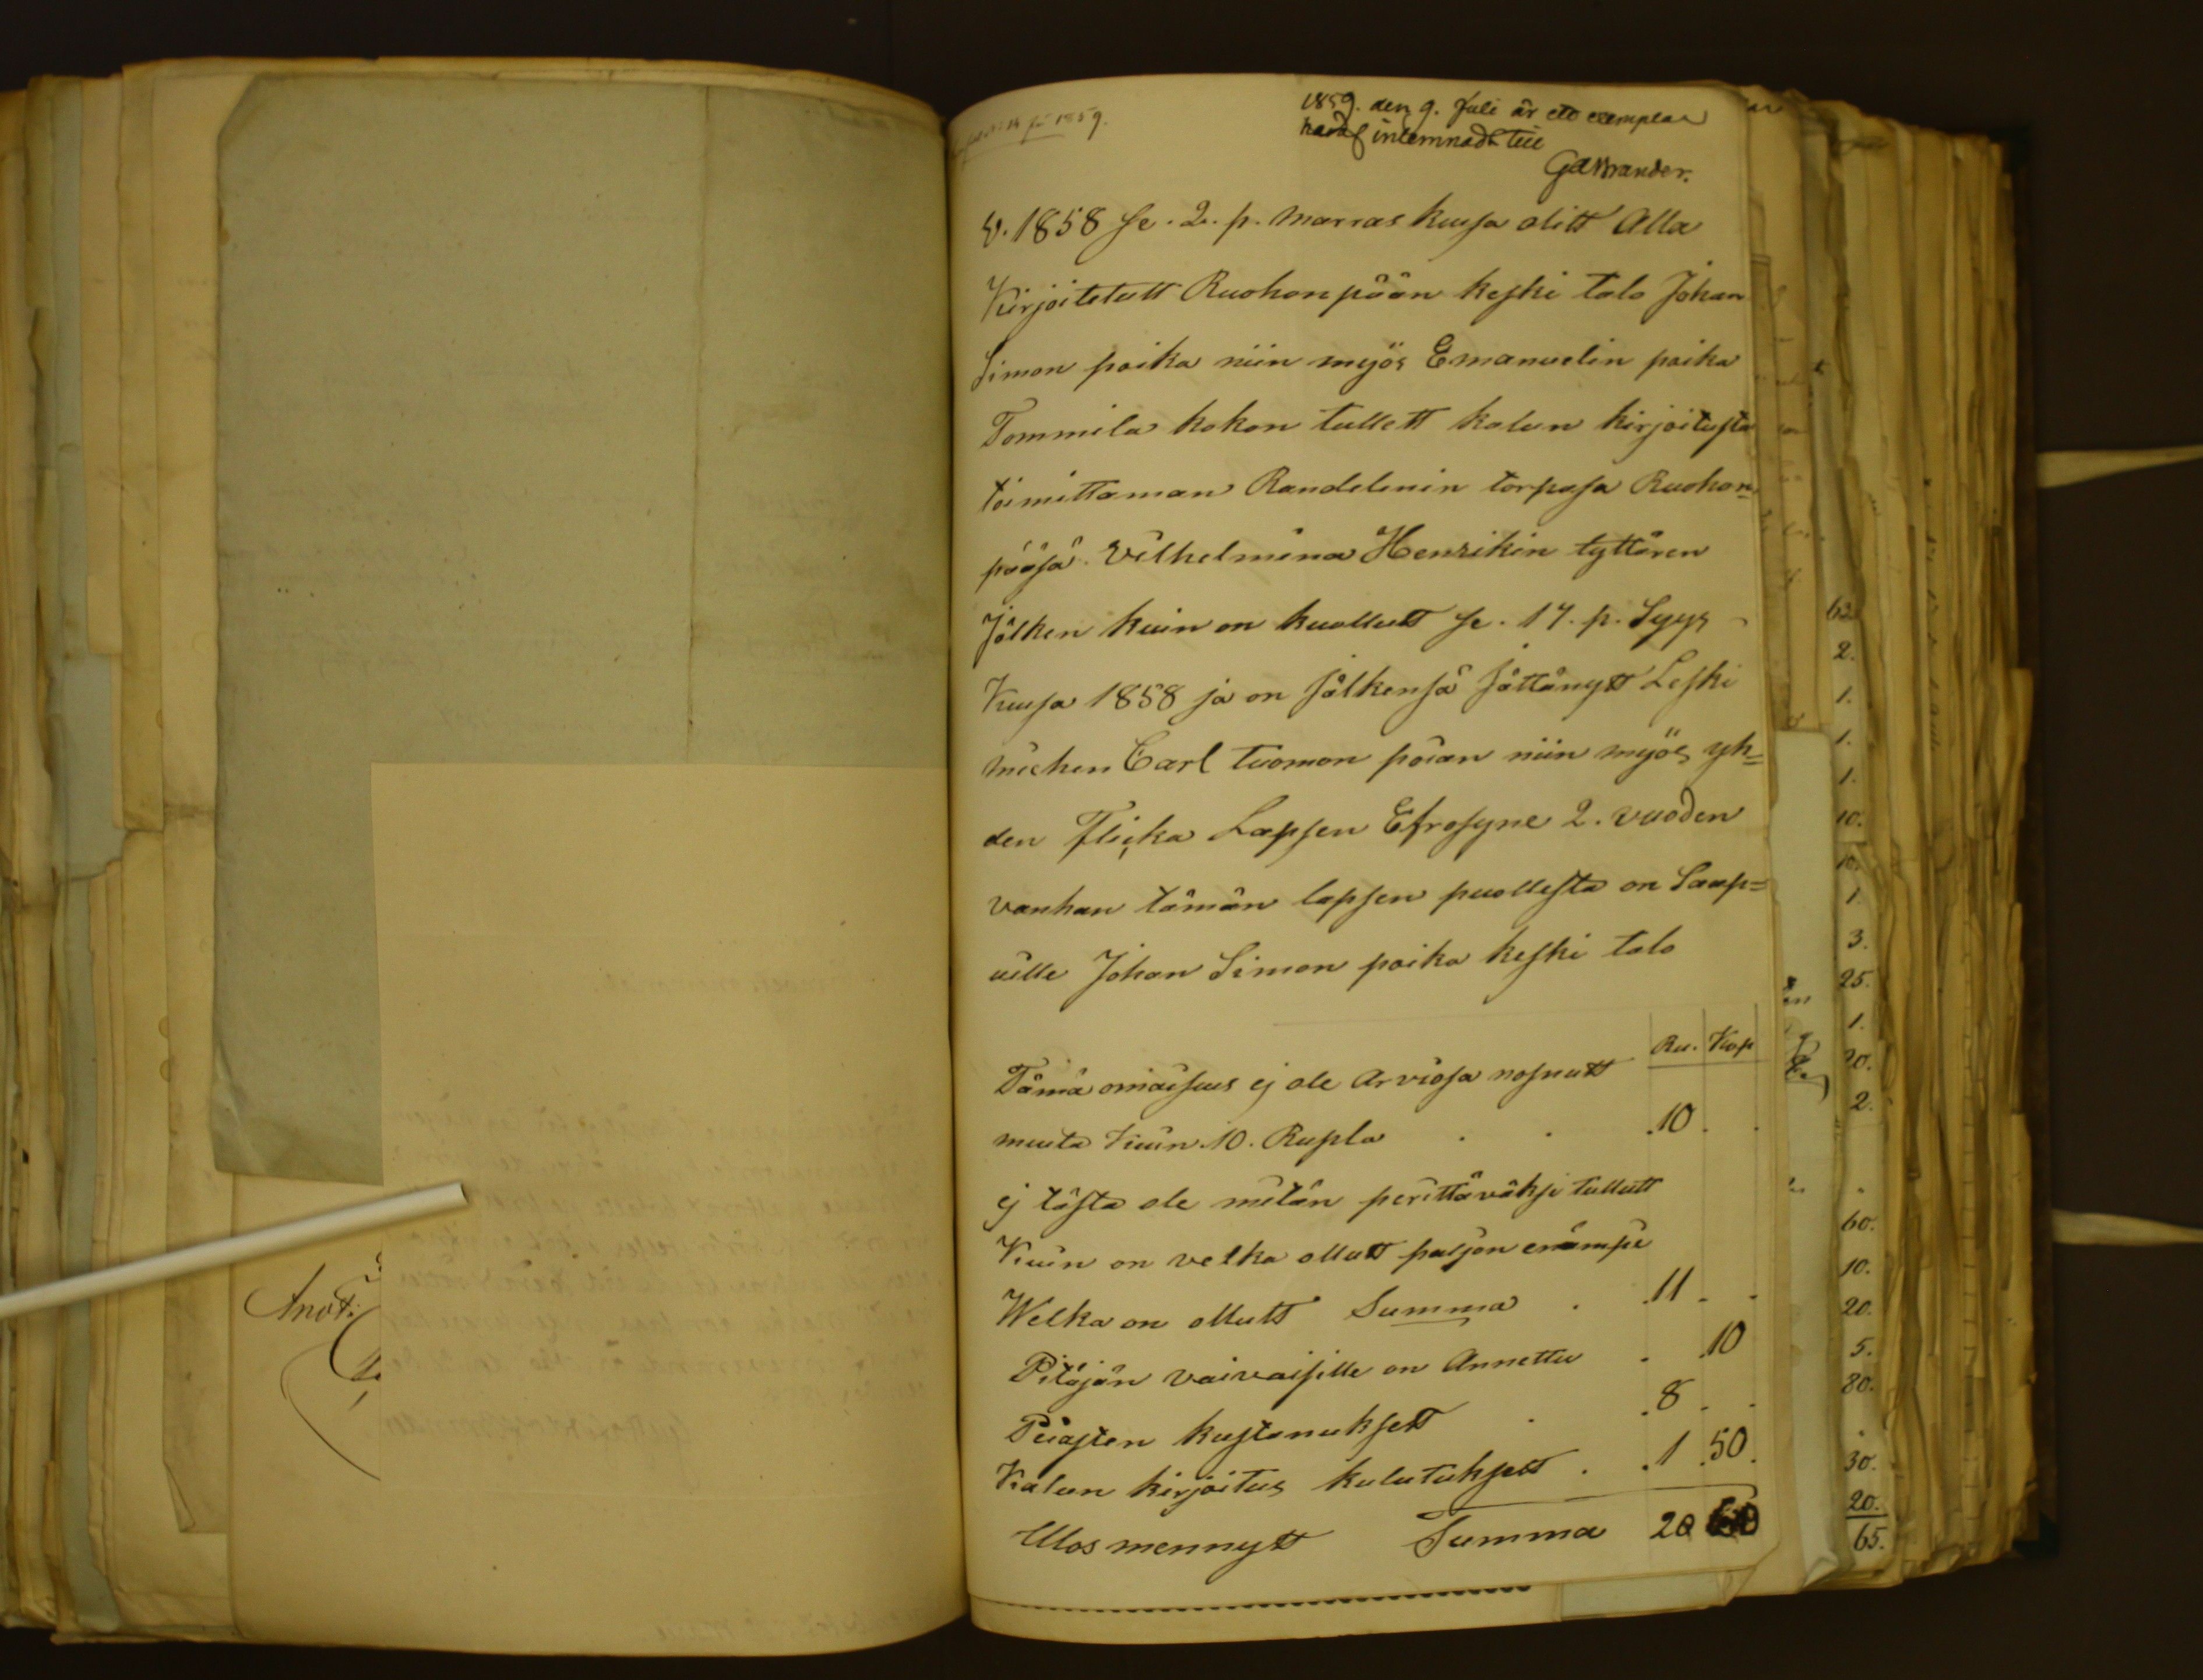 1859. den 9. Juli är ett exemplar
häraf inlemnadt till
GABrander.
V. 1858 se. 2. p. marras kuusa olitt Alla
Kirjoitetutt Ruohonpään keski talo Johan
Simon poika niin myös Emanuelin poika
Tommila kokon tullett kalun kirjoitusta
toimittaman Randelinin torpasa Ruohon-
pääsä. Vilhelmina Henrikin tyttären
Jälken kuin on kuollutt se. 17. p. Syys
Kuusa 1858 ja on jälkensä jättänytt Leski
miehen Carl tuomon poian niin myös yh=
den Flicka Lapsen Efrosyne 2. vuoden
vanhan tämän lapsen puollesta on Saap=
uille Johan Simon poika keski talo
Ru. Kop
Tämä omaisuus ej ole Arviosa nosnutt
muuta kuin 10. Rupla . . .10. .
ej tästä ole mitän perittäväksi tullutt
Kuin on velka ollutt paljon enämpi
Welka on ollutt Summa . .11 - -
Pitäjän vaivaisille on Annettu . .10
Piiasten kustanuksett . .8 - -
Kalun kirjoitus kulutuksett . .1 .50.
Ulos mennytt Summa 20 60
Anot:
62.
2.
1.
1.
1.
10.
10.
1.
3.
25.
1.
20.
2.
60.
10.
20.
5.
80.
30.
20.
65.